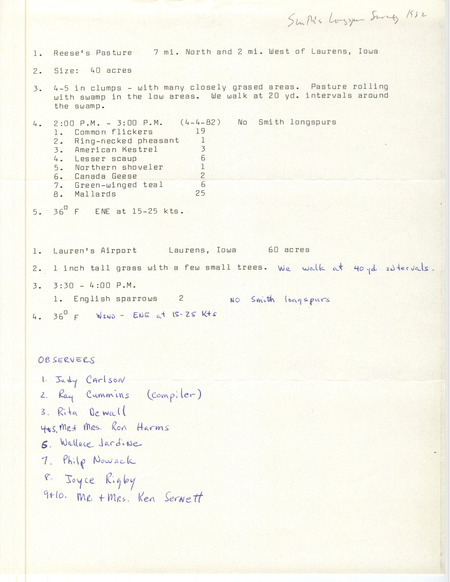 Smith's Longspur Survey 1982
1. Reese's Pasture 7 mi. North and 2 mi. West of Laurens, Iowa
2. Size: 40 acres
3. 4-5 in clumps - with many closely grased areas. Pasture rolling
with swamp in the low areas. We walk at 20 yd. intervals around
the swamp.
4. 2:00 P.M. - 3:00 P.M. (4-4-82) No Smith longspurs
1. Common flickers 19
2. Ring-necked pheasant 1
3. American Kestrel 3
4. Lesser scaup 6
5. Northern shoveler 1
6. Canada Geese 2
7. Green-winged teal 6
8. Mallards 25
5. 36° F ENE at 15-25 kts.
1. Lauren's Airport Laurens, Iowa 60 acres
2. 1 inch tall grass with a few small trees. We walk at 40 yd intervals.
3. 3:30 - 4:00 P.M.
1. English sparrows 2 No Smith longspurs
4. 36° F Wind - ENE at 15-25 kts
OBSERVERS
1. Judy Carlson
2. Ray Cummins (compiler)
3. Rita Dewall
4+5. Mr+ Mrs. Ron Harms
6. Wallace Jardine
7. Philp Nowack
8. Joyce Rigby
9+10. Mr. + Mrs. Ken Sernett